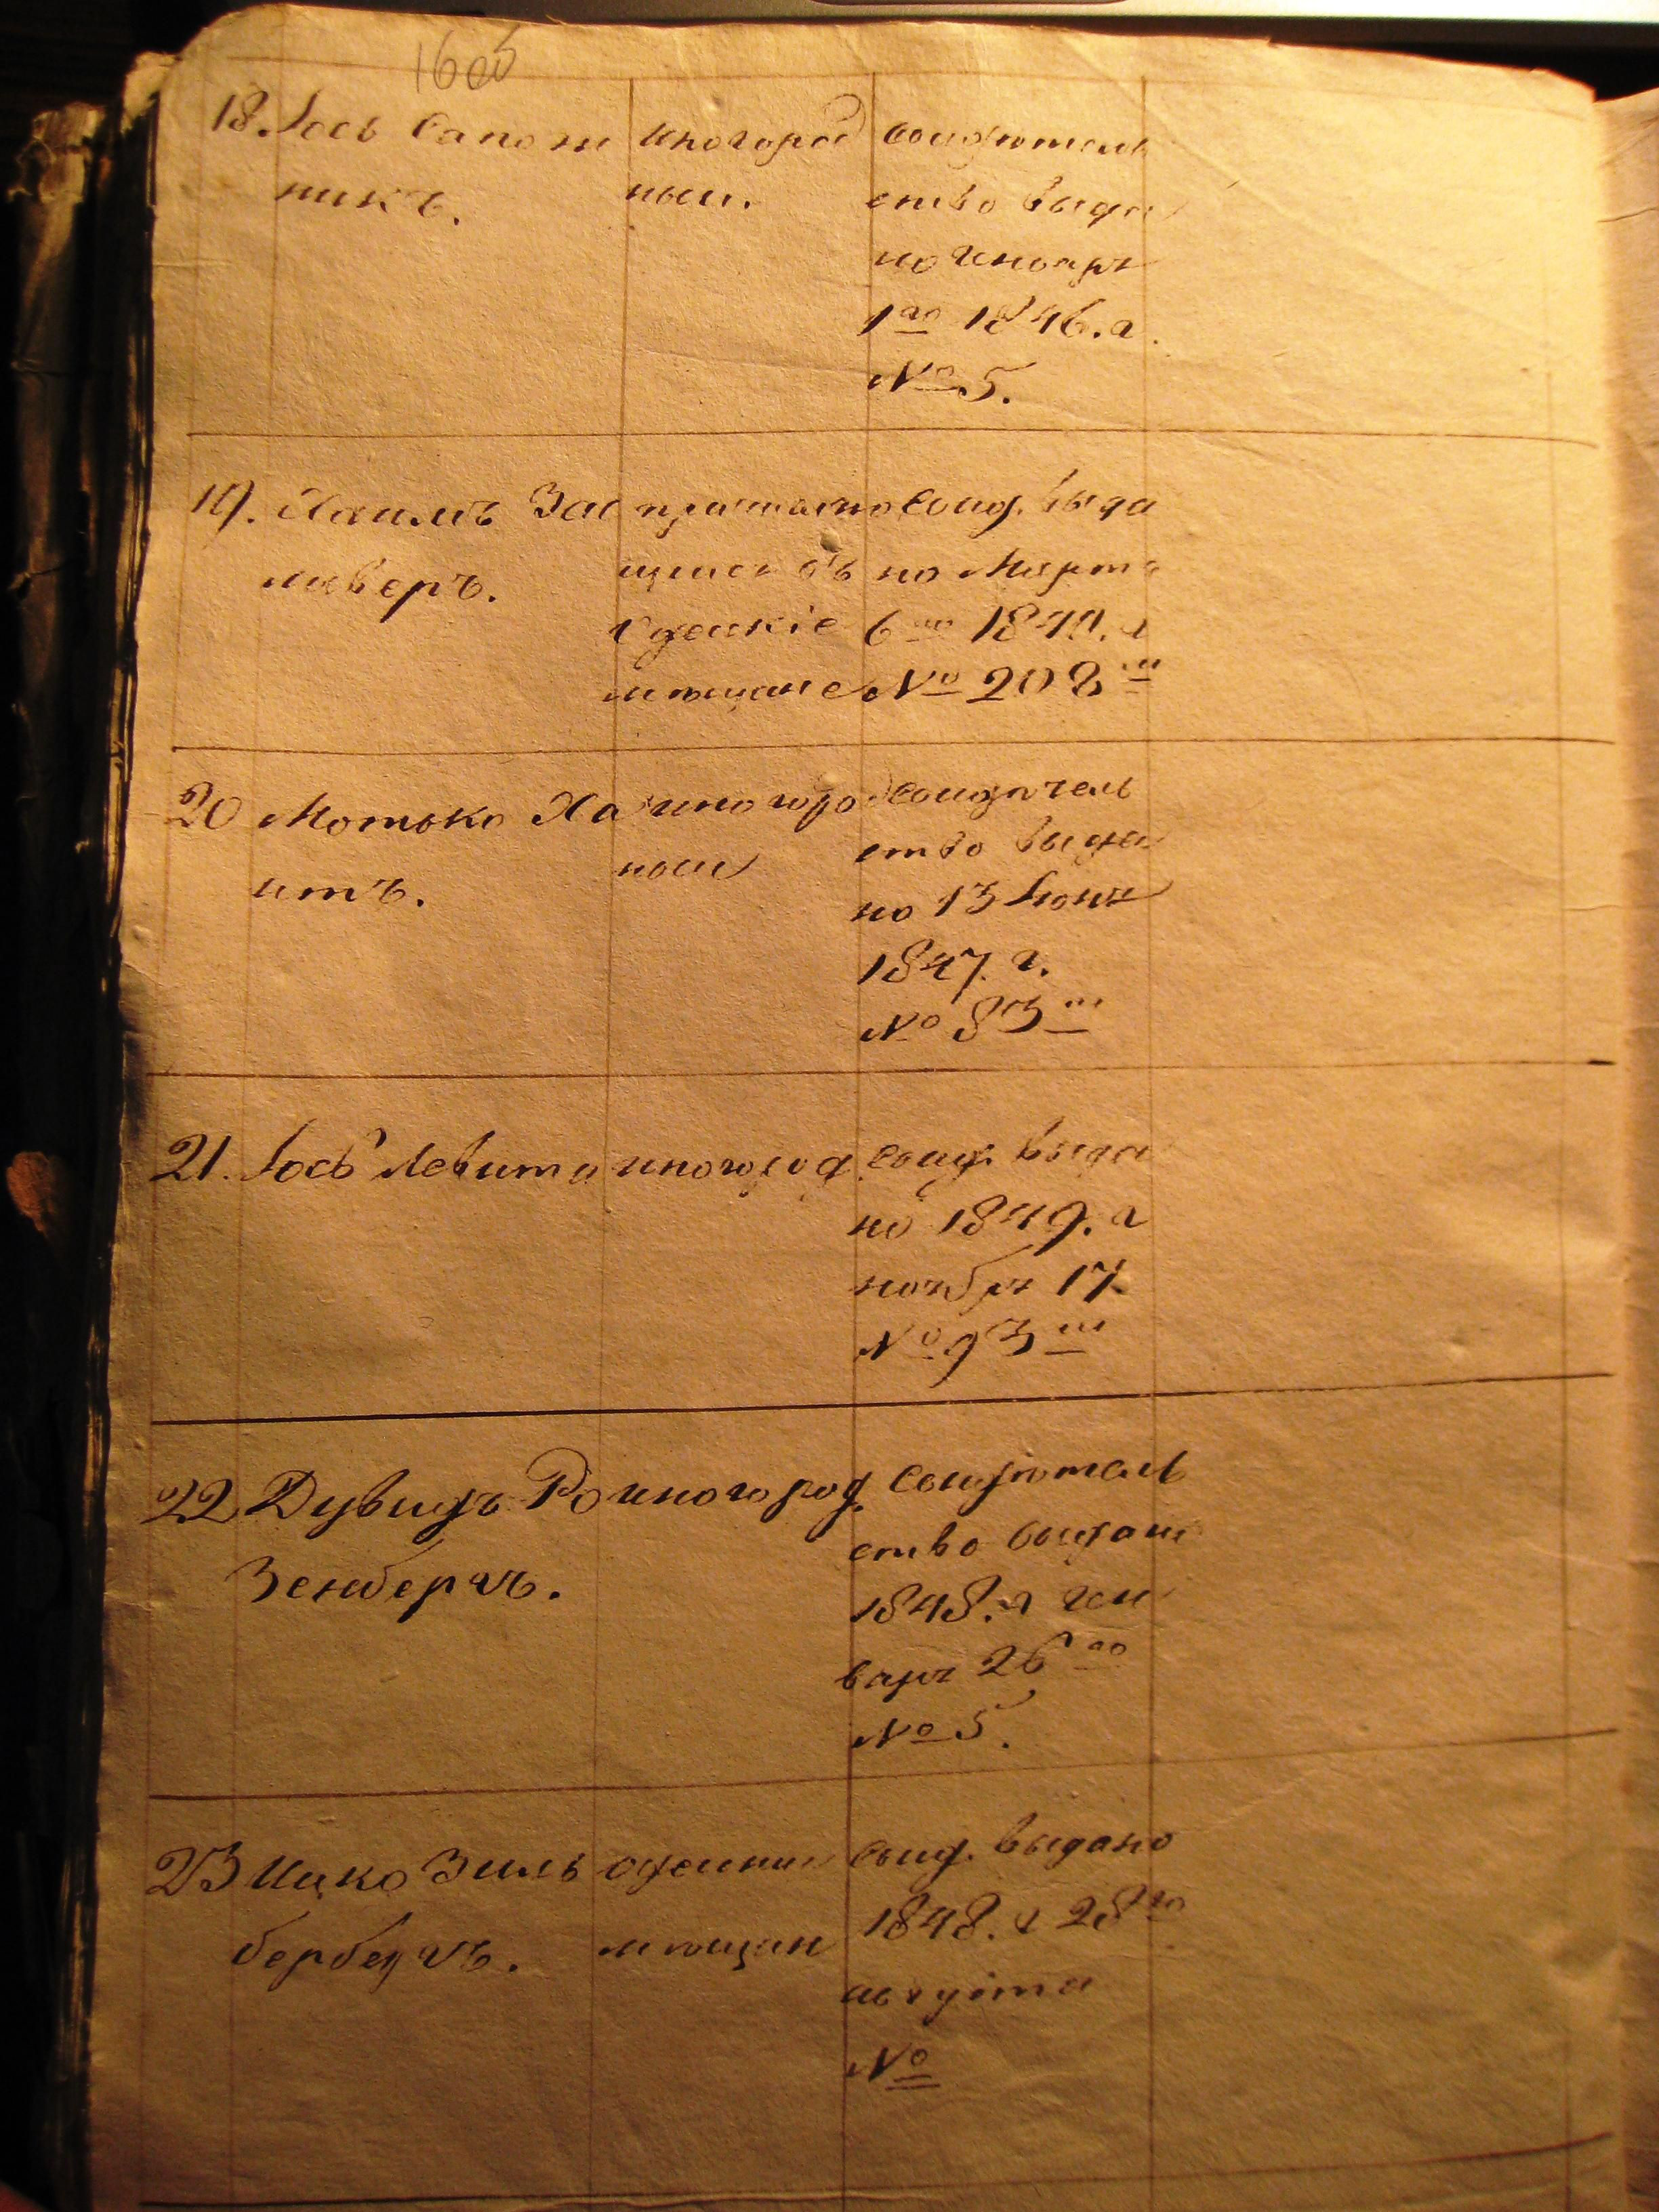 16 об
18. Іось Сапож
никъ.
иногород
ный.
Свидѣтель
ство выда
но Генваря
1го 1846. г.
№ 5.
19. Хаимъ Зас
ливеръ.
щийся въ
Одескіе
мѣщане
Свид. выда
но Марта
6го 1840. г
№ 208
20 Мотько Ха
итъ.
иногоро
ный
Свидѣтель
ство выда
но 13 Іюня
1847. г.
№ 83
21. Іось Левита
иногород.
Свид. выда
но 1849. г
ноября 17.
№ 93
22 Дувидъ Ро
зенбергъ.
иногород.
Свидѣтель
ство выдан
1848. г ген
варя 26го
№ 5.
23 Ицко Зиль
бербергъ.
одескии
мѣщан
Свид. выдано
1848. г 28го
августа
№